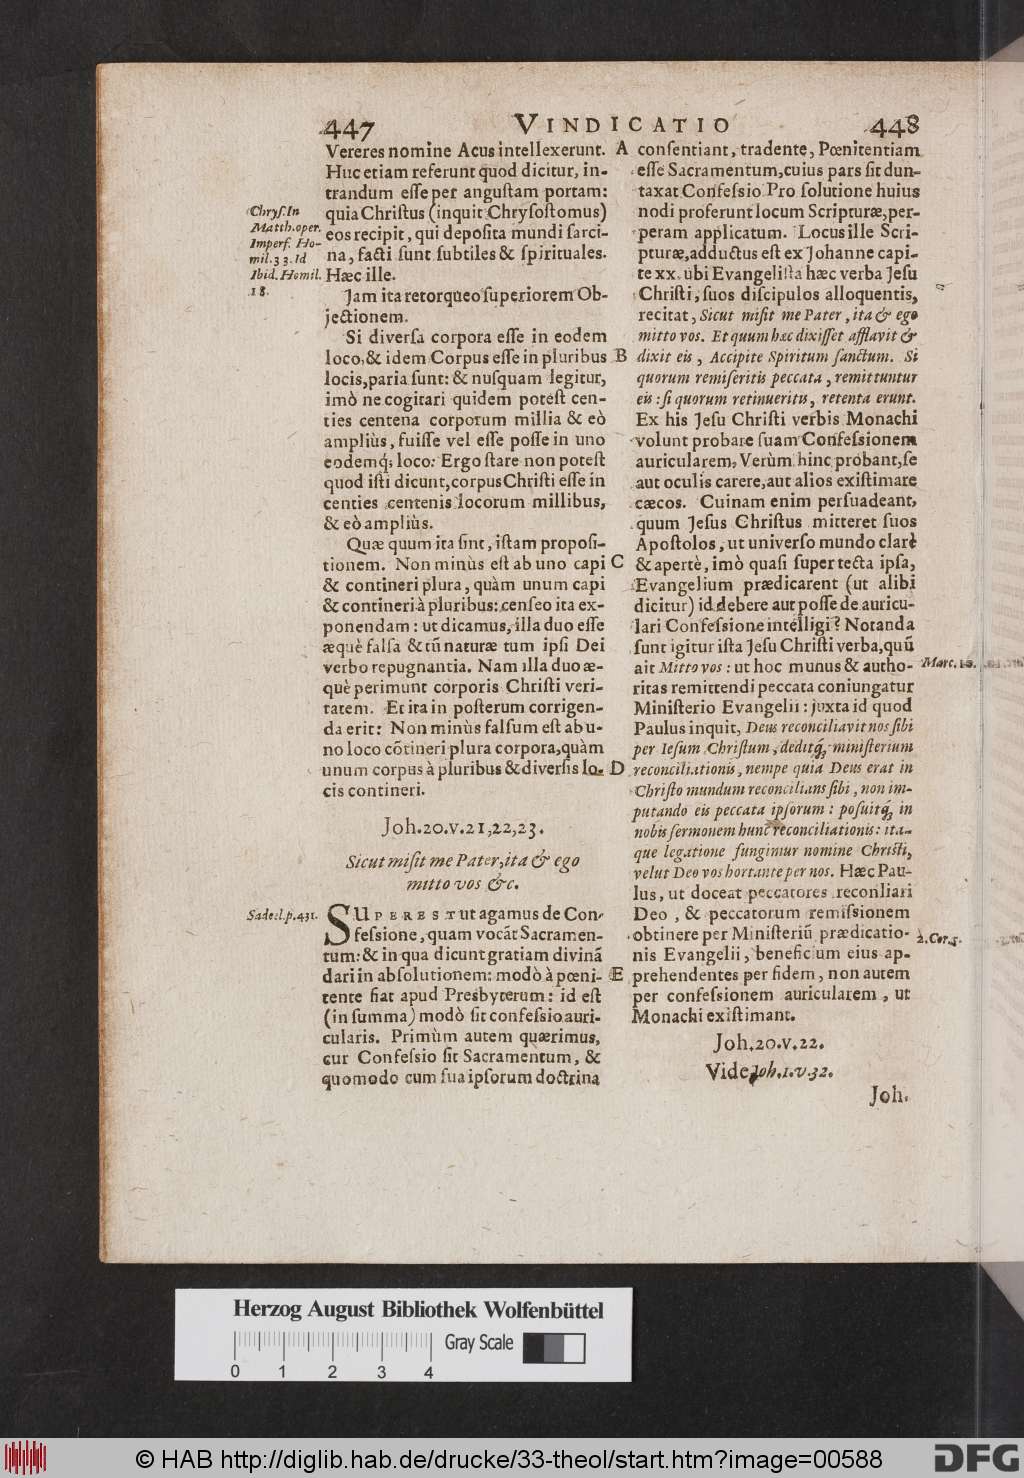 447 VINDICATIO 448
Vereres nomine Acus intellexerunt.
Huc etiam referunt quod dicitur, in-
trandum esse per angustam portam:
quia Christus (inquit Chrysostomus)
eos recipit, qui deposita mundi sarci-
na, facti sunt subtiles & spirituales.
Hæc ille.
Jam ita retorqueo superiorem Ob-
jectionem.
Si diversa corpora esse in eodem
loco, & idem Corpus esse in pluribus
locis, paria sunt: & nusquam legitur,
imò ne cogitari quidem potest cen-
ties centena corporum millia & eò
ampliùs, fuisse vel esse posse in uno
eodemq; loco: Ergo stare non potest
quod isti dicunt, corpus Christi esse in
centies centenis locorum millibus,
& eò ampliùs.
Quæ quum ita sint, istam proposi-
tionem. Non minùs est ab uno capi
& contineri plura, quàm unum capi
& contineri à pluribus: censeo ita ex-
ponendam: ut dicamus, illa duo esse
æquè falsa & tũ naturæ tum ipsi Dei
verbo repugnantia. Nam illa duo æ-
què perimunt corporis Christi veri-
tatem. Et ita in posterum corrigen-
da erit: Non minùs falsum est ab u-
no loco cõtineri plura corpora, quàm
unum corpus à pluribus & diversis lo-
cis contineri.
Joh. 20. v. 21, 22, 23.
Sicut misit me Pater, ita & ego
mitto vos &c.
SUPEREST ut agamus de Con-
fessione, quam vocãt Sacramen-
tum: & in qua dicunt gratiam divinã
dari in absolutionem: modò à pœni-
tente fiat apud Presbyterum: id est
(in summa) modò sit confessio auri-
cularis. Primùm autem quærimus,
cur Confessio sit Sacramentum, &
quomodo cum sua ipsorum doctrina
Chrys. In
Matth. oper.
Imperf. Ho-
mil. 33. Id
Ibid. Homil.
18.
Sadeel. p. 431.
A
B
C
D
E
consentiant, tradente, Pœnitentiam
esse Sacramentum, cuius pars sit dun-
taxat Confessio. Pro solutione huius
nodi proferunt locum Scripturæ, per-
peram applicatum. Locus ille Scri-
pturæ, adductus est ex Johanne capi-
te xx. ubi Evangelista hæc verba Jesu
Christi, suos discipulos alloquentis,
recitat, Sicut misit me Pater, ita & ego
mitto vos. Et quum hæc dixisset afflavit &
dixit eis, Accipite Spiritum sanctum. Si
quorum remiseritis peccata, remittuntur
eis: si quorum retinueritis, retenta erunt.
Ex his Jesu Christi verbis Monachi
volunt probare suam Confessionem
auricularem, Verùm hinc probant, se
aut oculis carere, aut alios existimare
cæcos. Cuinam enim persuadeant,
quum Jesus Christus mitteret suos
Apostolos, ut universo mundo clarè
& apertè, imò quasi super tecta ipsa,
Evangelium prædicarent (ut alibi
dicitur) id debere aut posse de auricu-
lari Confessione intelligi? Notanda
sunt igitur ista Jesu Christi verba, quũ
ait Mitto vos: ut hoc munus & autho-
ritas remittendi peccata coniungatur
Ministerio Evangelii: juxta id quod
Paulus inquit, Deus reconciliavit nos sibi
per Iesum Christum, deditq; ministerium
reconciliationis, nempe quia Deus erat in
Christo mundum reconcilians sibi, non im-
putando eis peccata ipsorum: posuitq; in
nobis sermonem hunc reconciliationis: ita-
que legatione fungimur nomine Christi,
velut Deo vos hortante per nos. Hæc Pau-
lus, ut doceat peccatores reconliari
Deo, & peccatorum remissionem
obtinere per Ministeriũ prædicatio-
nis Evangelii, beneficium eius ap-
prehendentes per fidem, non autem
per confessionem auricularem, ut
Monachi existimant.
Joh. 20. v. 22.
Vide Joh. 1. v. 32.
Joh.
Marc. 16.
2. Cor. 5.
Herzog August Bibliothek Wolfenbüttel
Gray Scale
0 1 2 3 4
© HAB http://diglib.hab.de/drucke/33-theol/start.htm?image=00588
DFG